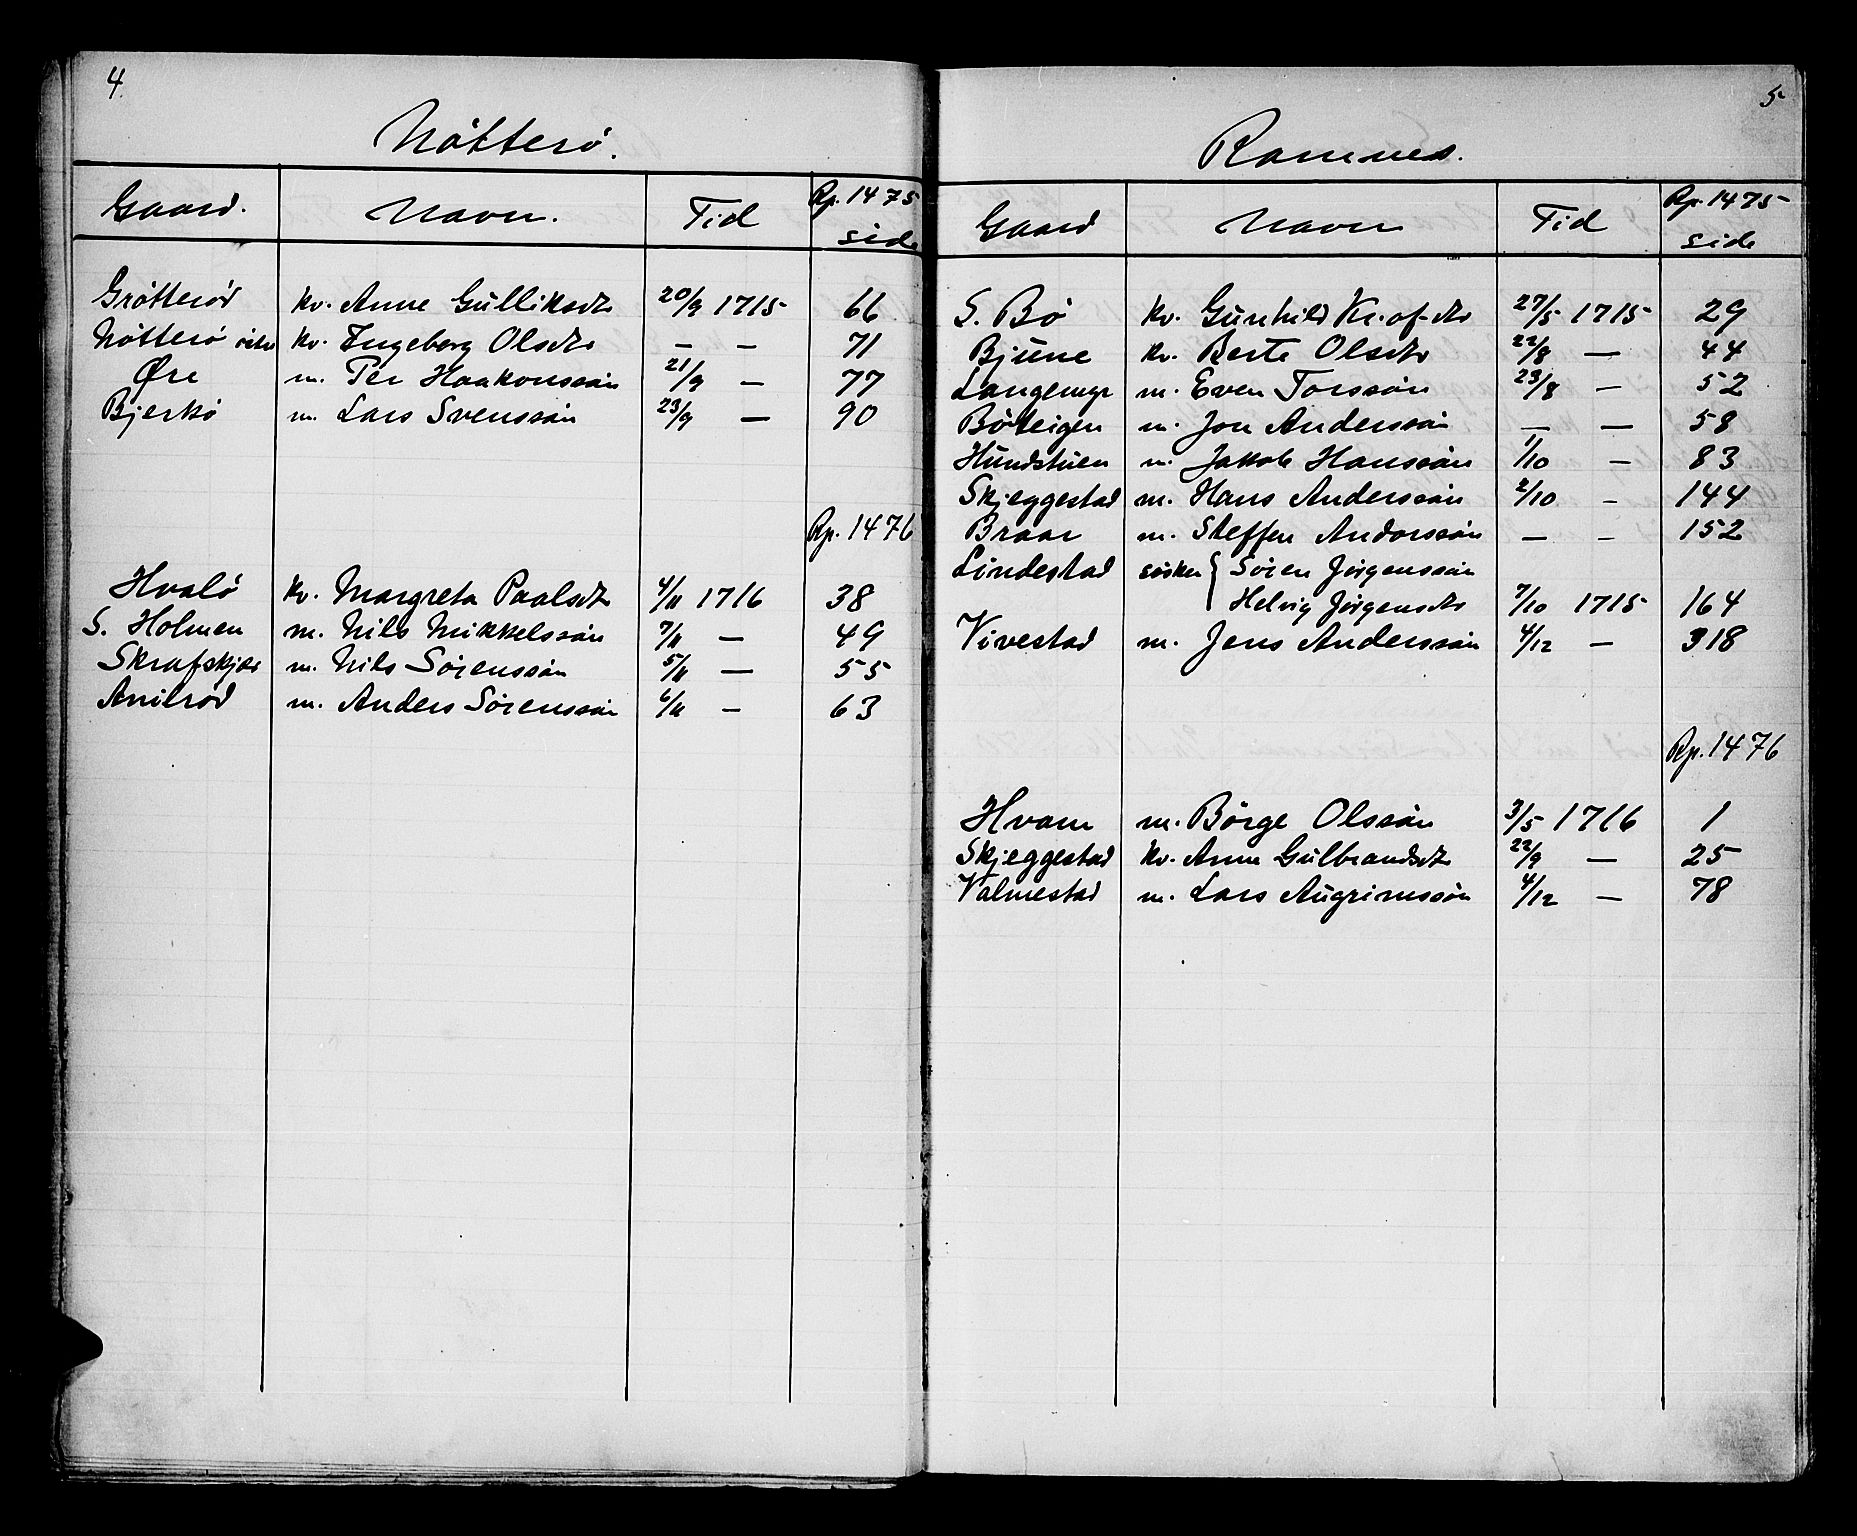 4.
Nötterö.
Gaard. Navn. Tid Rp. 1475 side
Grötteröd kv. Anne Gulliksdtr 20/9 1715 66
Nötterö kv. Ingeborg Olsdtr — — 71
Øre m. Per Haakonssön 21/9 — 77
Bjerkö m. Lars Svenssön 23/9 — 90
Rp. 1476
Hvalö kv. Margreta Paalsdtr 4/11 1716 38
S. Holmen m. Nils Mikkelssön 7/11 — 49
Skrafskjær m. Nils Sörenssön 5/11 — 55
m. Anders Sörenssön 6/11 — 63
5
Ramnes.
Gaard Navn Tid Rp. 1475 side
S. Bö kv. Gunhild Kr.of.dtr 27/5 1715 29
Bjune kv. Berte Olsdtr 22/8 — 44
Langemyr m. Even Torssön 23/8 — 52
Böleigen m. Jon Anderssön — — 58
Hundstuen m. Jakob Hanssön 1/10 — 83
Skjeggestad m. Hans Anderssön 2/10 - 144
Braar m. Steffen Andorssön — - 152
Lindestad sösken { Sören Jörgenssön
Helvig Jörgensdtr 7/10 1715 164
Vivestad m. Jens Anderssön 4/12 — 318
Rp. 1476
Hvam m. Börge Olssön 3/5 1716 1
Skjeggestad kv. Anne Gulbrandsdtr 22/9 — 25
Valmestad m. Lars Augrimssön 4/12 — 78